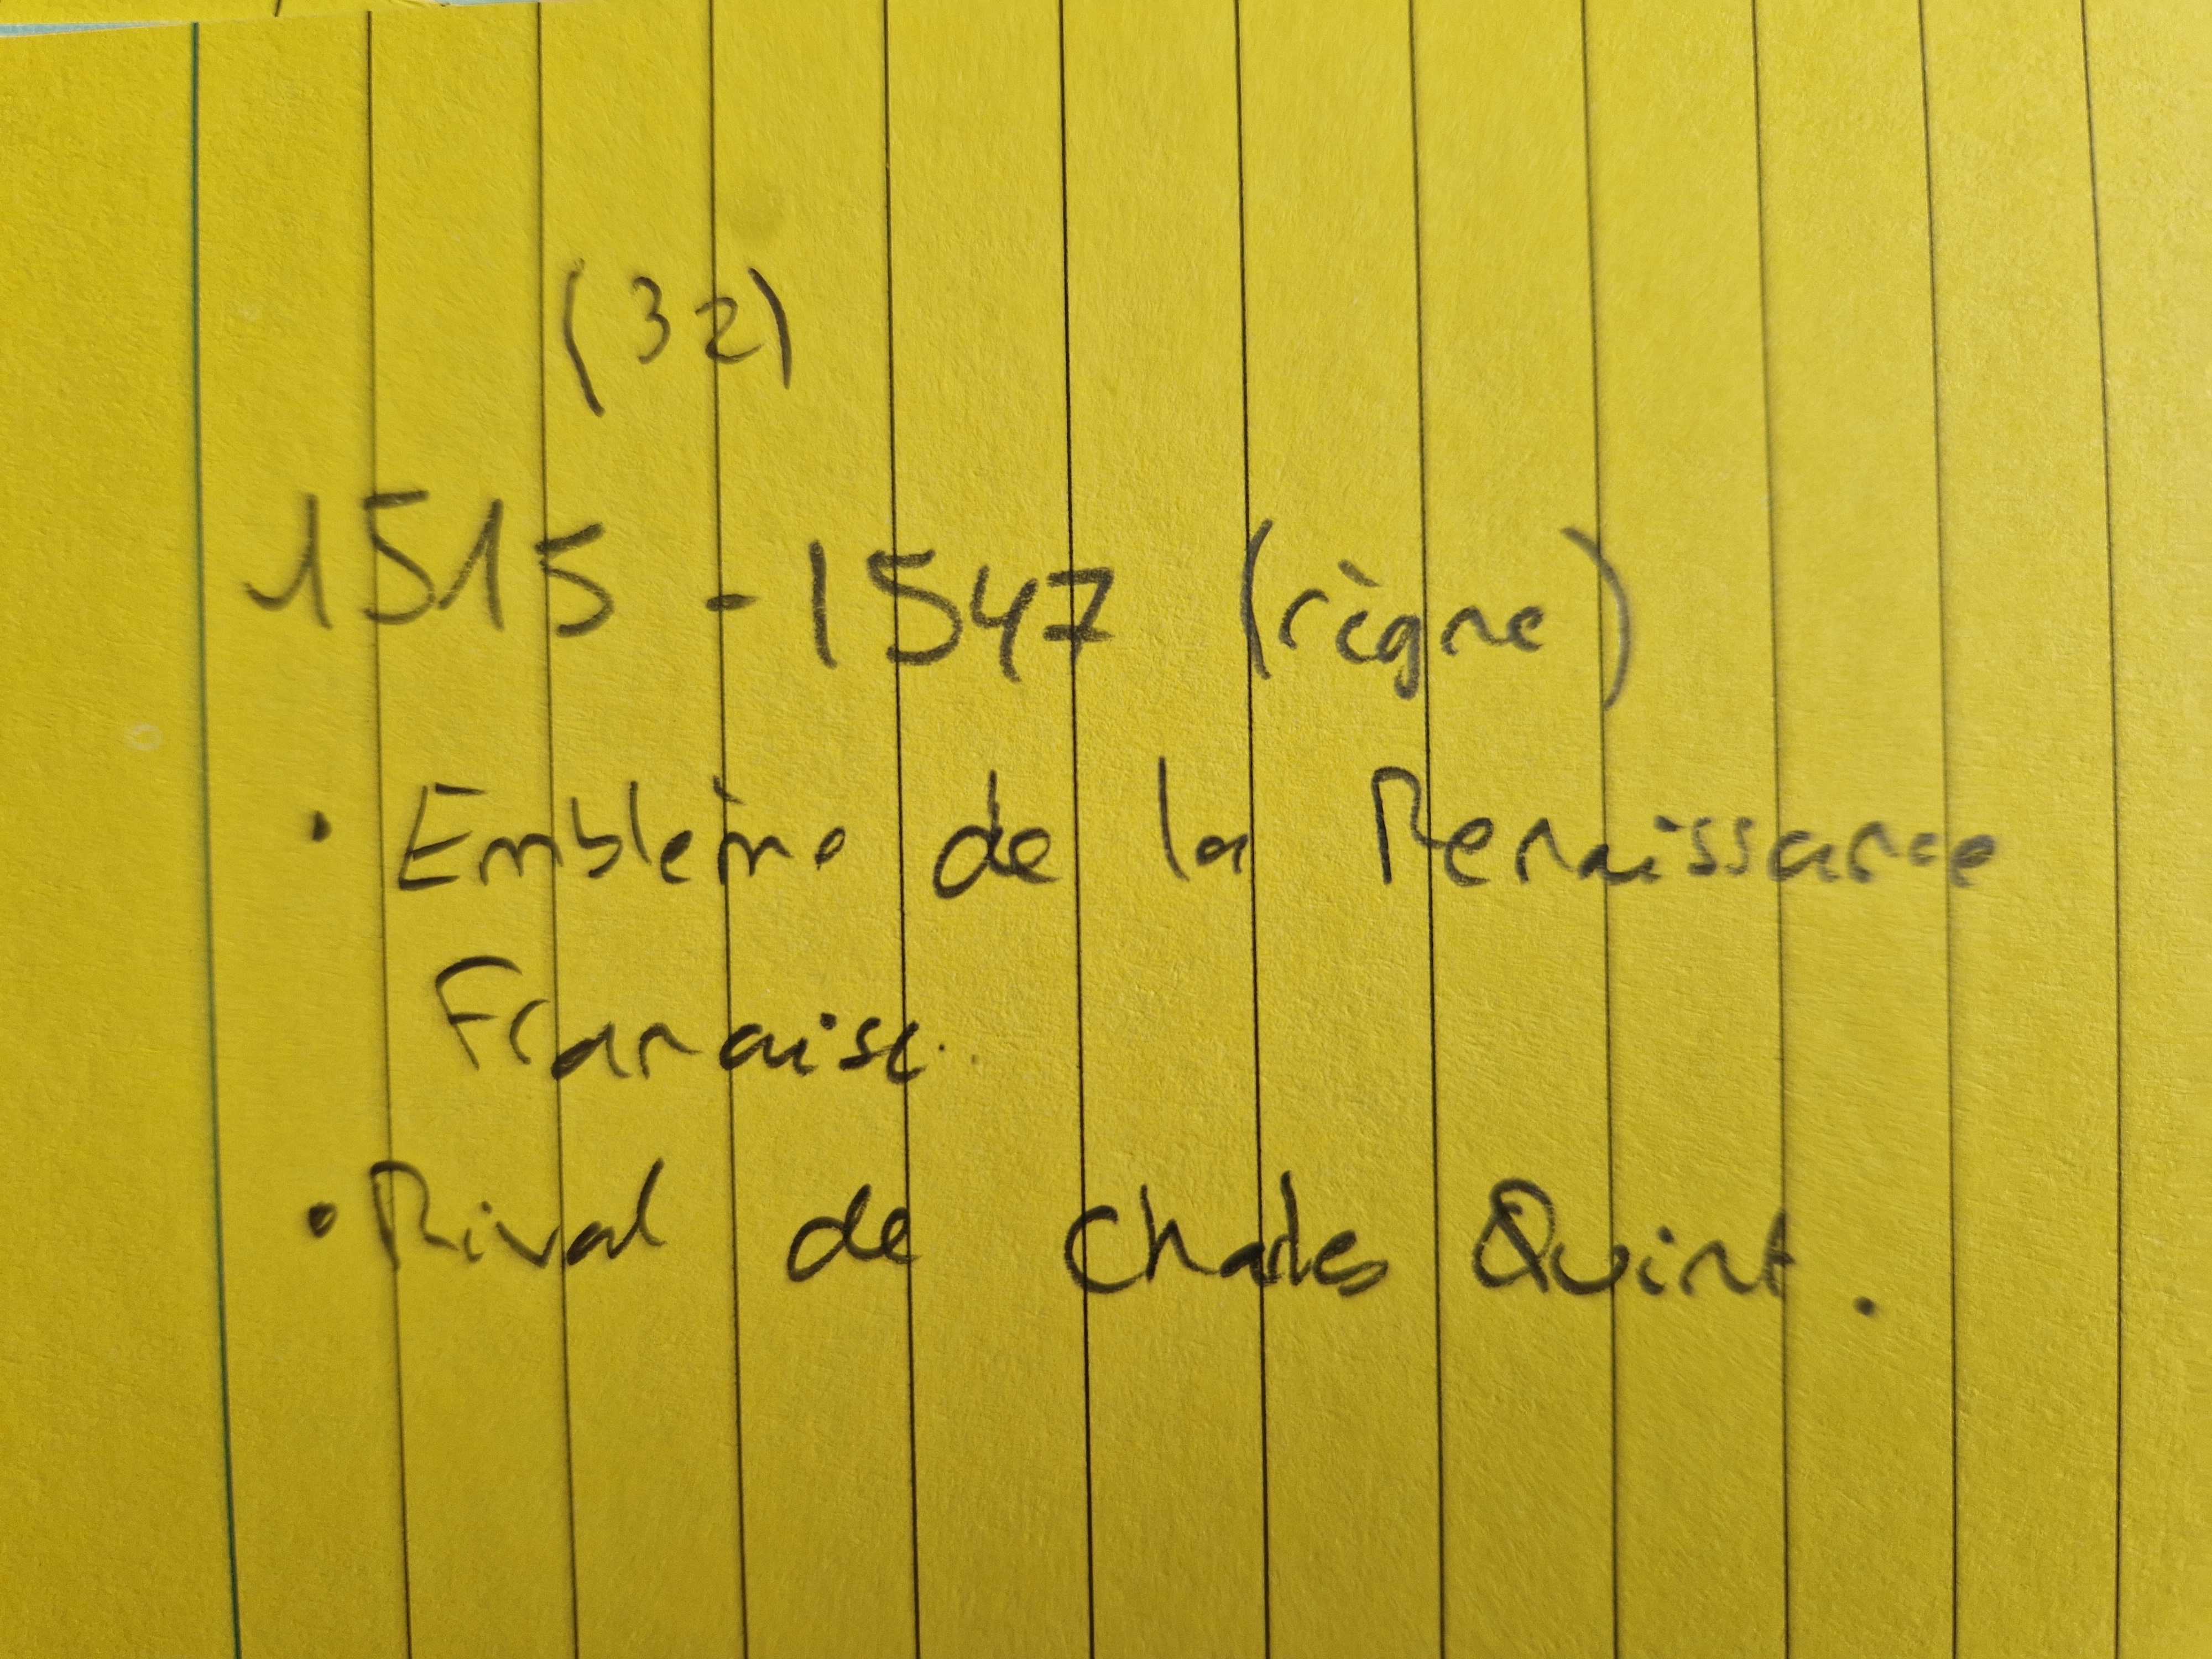 (32)
1515 - 1547 (règne)
• Emblème de la Renaissance
Franaise.
• Rival de Charles Quint.